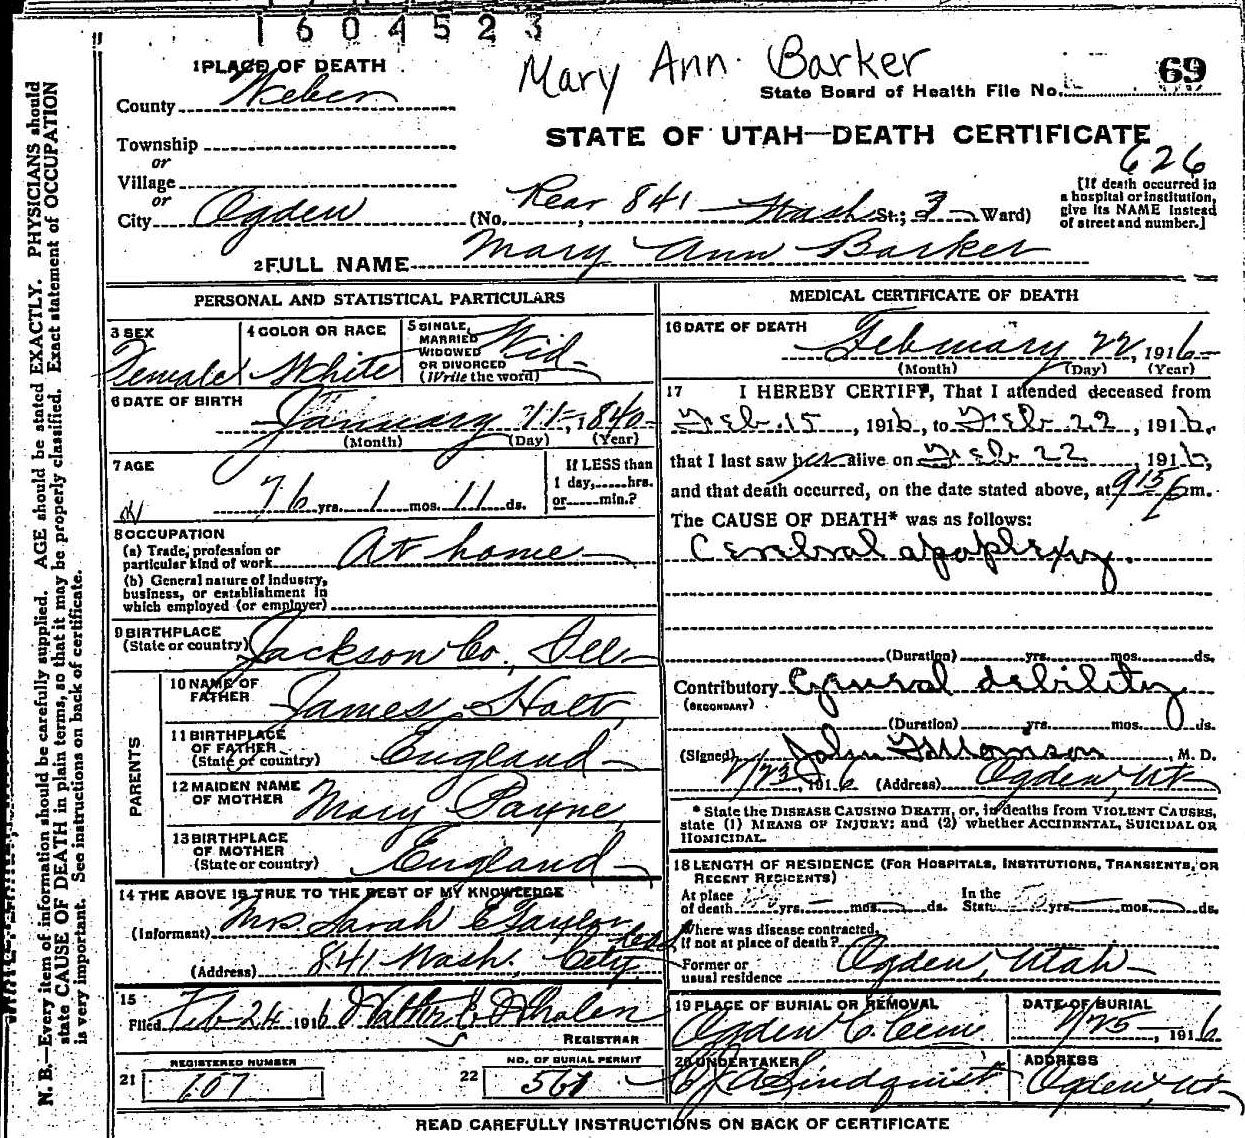 1604523
Mary Ann Barker
1 PLACE OF DEATH
County Weber
State Board of Health File No. 69
STATE OF UTAH—DEATH CERTIFICATE
626
Township
or
Village
or
City Ogden (No. Rear 841 Wash St.; 3 Ward)
[If death occurred in a hospital or institution, give its NAME instead of street and number.]
2 FULL NAME Mary Ann Barker
PERSONAL AND STATISTICAL PARTICULARS
3 SEX Female
4 COLOR OR RACE White
5 SINGLE, MARRIED WIDOWED OR DIVORCED (Write the word) Wid
6 DATE OF BIRTH
January 11, 1840
(Month) (Day) (Year)
7 AGE
76 yrs. 1 mos. 11 ds.
If LESS than 1 day, hrs. or min.?
8 OCCUPATION
(a) Trade, profession or particular kind of work At home
(b) General nature of Industry, business, or establishment in which employed (or employer)
9 BIRTHPLACE
(State or country) Jackson Co., Ill
PARENTS
10 NAME OF FATHER James Holt
11 BIRTHPLACE OF FATHER (State or country) England
12 MAIDEN NAME OF MOTHER Mary Payne
13 BIRTHPLACE OF MOTHER (State or country) England
14 THE ABOVE IS TRUE TO THE BEST OF MY KNOWLEDGE
(Informant) Mrs. Sarah E Taylor
(Address) 841 Wash. City
15
Filed Feb 24 1916 Walter E Whalen
REGISTRAR
REGISTERED NUMBER
21 607
NO. OF BURIAL PERMIT
22 561
MEDICAL CERTIFICATE OF DEATH
16 DATE OF DEATH
February 22, 1916
(Month) (Day) (Year)
17 I HEREBY CERTIFY, That I attended deceased from
Feb. 15, 1916, to Feb 22, 1916,
that I last saw her alive on Feb 22, 1916,
and that death occurred, on the date stated above, at 915 P m.
The CAUSE OF DEATH* was as follows:
Cerebral apoplexy.
(Duration) yrs. mos. ds.
Contributory General debility
(SECONDARY)
(Duration) yrs. mos. ds.
(Signed) John G. Morison, M. D.
2/23, 1916 (Address) Ogden, Ut
* State the DISEASE CAUSING DEATH, or, in deaths from VIOLENT CAUSES, state (1) MEANS OF INJURY; and (2) whether ACCIDENTAL, SUICIDAL OR HOMICIDAL.
18 LENGTH OF RESIDENCE (FOR HOSPITALS, INSTITUTIONS, TRANSIENTS, OR RECENT RECIDENTS)
At place of death yrs. mos. ds. In the State yrs. mos. ds.
Where was disease contracted, if not at place of death?
Former or usual residence Ogden, Utah
19 PLACE OF BURIAL OR REMOVAL
Ogden C. Ceme
DATE OF BURIAL
2/25, 1916
20 UNDERTAKER
Lindquist
ADDRESS
Ogden, Ut
READ CAREFULLY INSTRUCTIONS ON BACK OF CERTIFICATE
N. B.—Every item of information should be carefully supplied. AGE should be stated EXACTLY. PHYSICIANS should
state CAUSE OF DEATH in plain terms, so that it may be properly classified. Exact statement of OCCUPATION
is very important. See instructions on back of certificate.